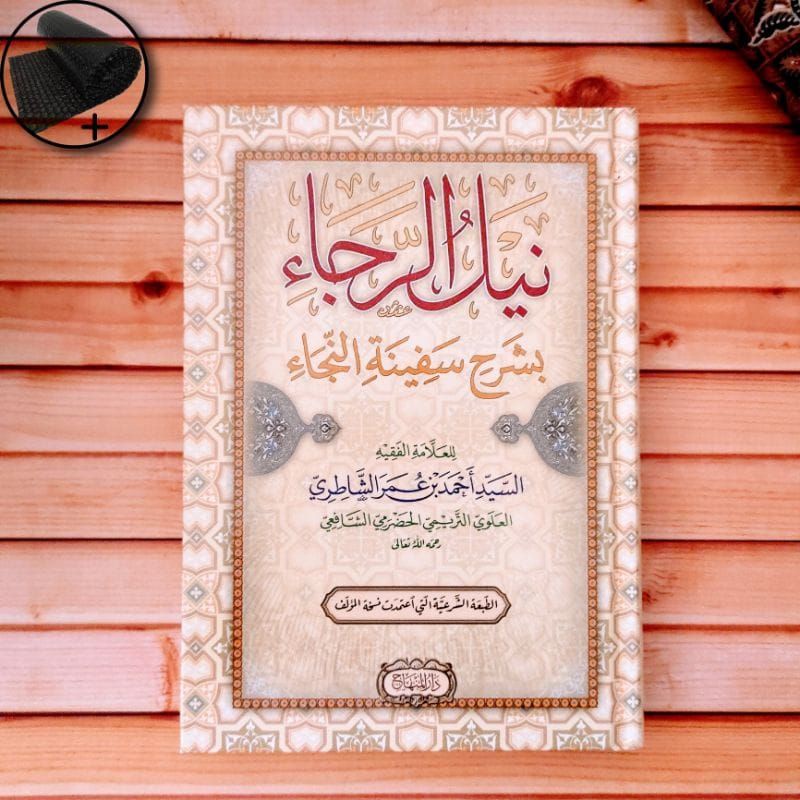 نَيْلُ الرَّجَاءِ
بِشَرْحِ سَفِينَةِ النَّجَاءِ
لِلعَلَّامَةِ الفَقِيْهِ
السَّيِّدِ أَحْمَدَ بْنِ عُمَرَ الشَّاطِرِيّ
العَلَوِيّ التَّرِيْمِيّ الحَضْرَمِيّ الشَّافِعِيّ
رحمه الله تعالى
الطَّبْعَة الشَّرْعِيَّة الَّتِي اعتمدت نسخة المؤلف
دَارُ المِنْهَاج